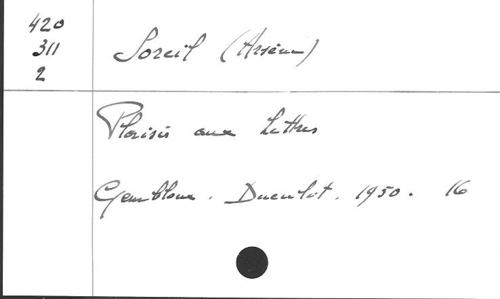 420
311
2
Soreil (Arsène)
Plaisir aux Lettres
Gembloux. Duculot. 1950. 16